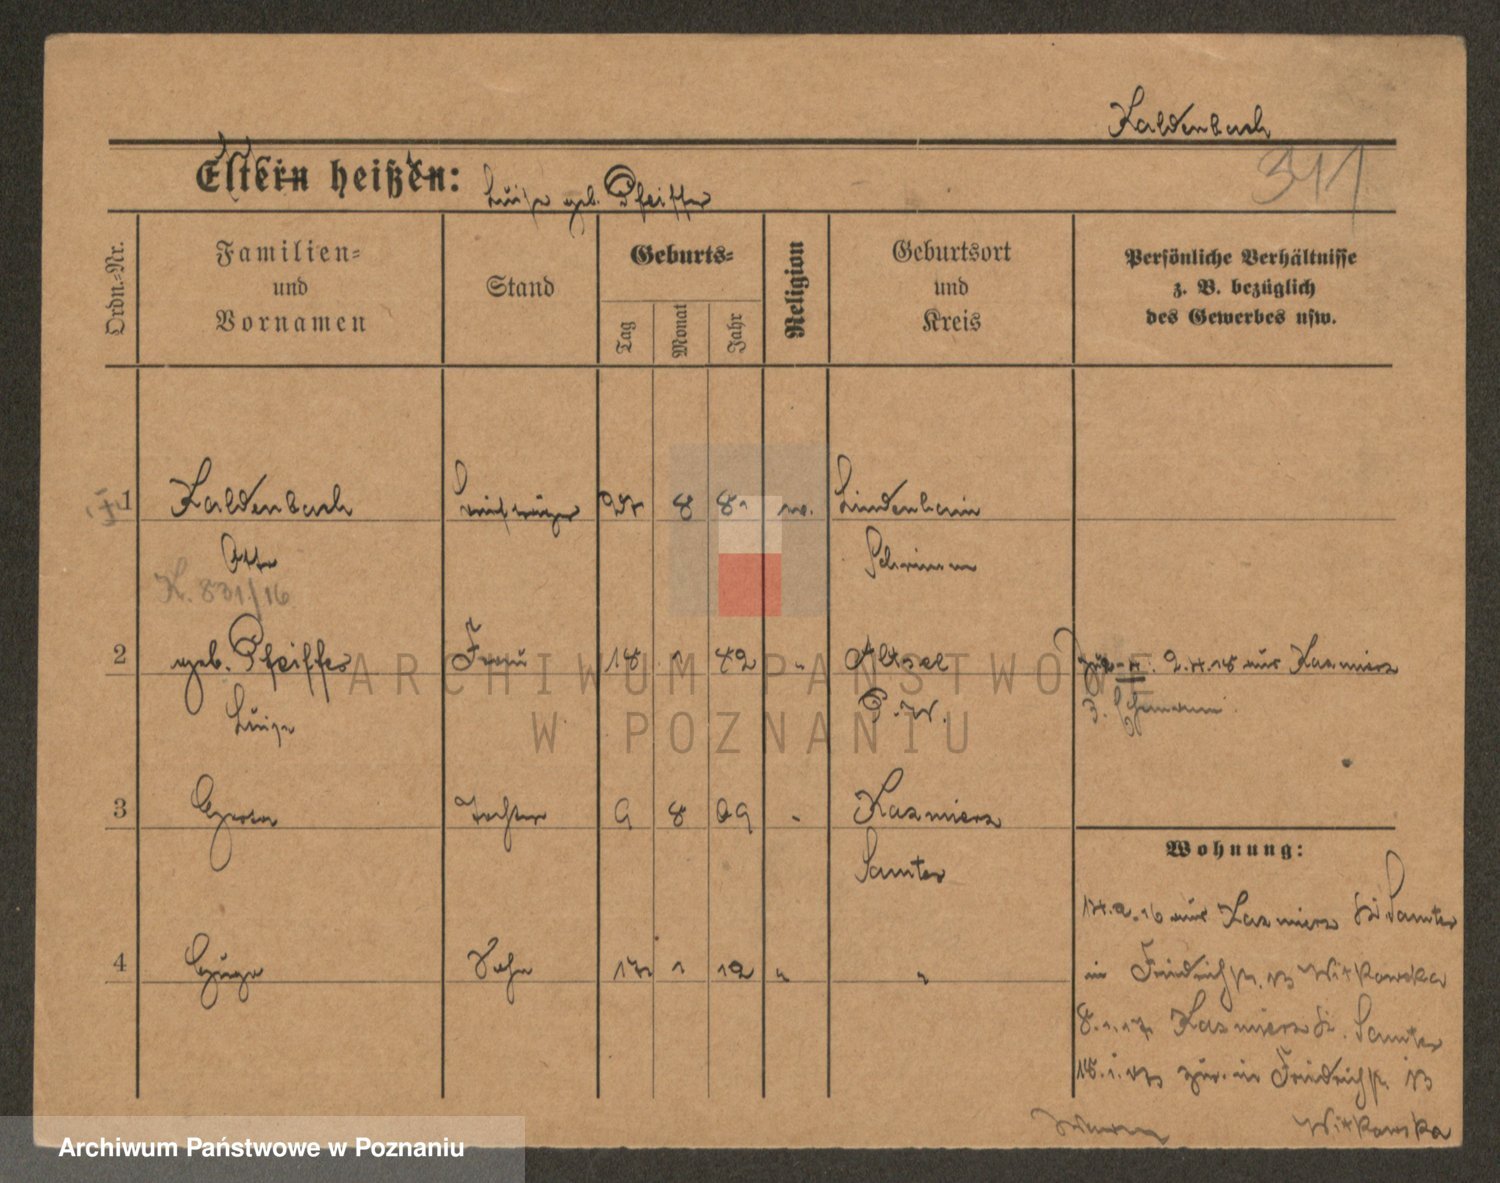 Kaldenbach
311
Eltern heißen: Luise geb. Pfeiffer
Ordn.-Nr.
Familien-
und
Vornamen
Stand
Geburts-
Tag
Monat
Jahr
Religion
Geburtsort
und
Kreis
Persönliche Verhältnisse
z. B. bezüglich
des Gewerbes usw.
1 Kaldenbach 8 81 Lindenhain
Otto Schrimm
K. 831/16
2 geb. Pfeiffer Frau 18 1 82 " 2.4.18 aus Kazmierz
Luise P. W.
3 Gerta Tochter 9 8 09 " Kazmierz
Samter
Wohnung:
4 Hugo Sohn 17 1 12 " "
16 aus Kazmierz Kr. Samter
in Friedrichstr. 13 Witkowska
8.1.17 Kazmierz Kr. Samter
18.1.17 zur. in Friedrichstr. 13
Witkowska
ARCHIWUM PAŃSTWOWE
W POZNANIU
Archiwum Państwowe w Poznaniu